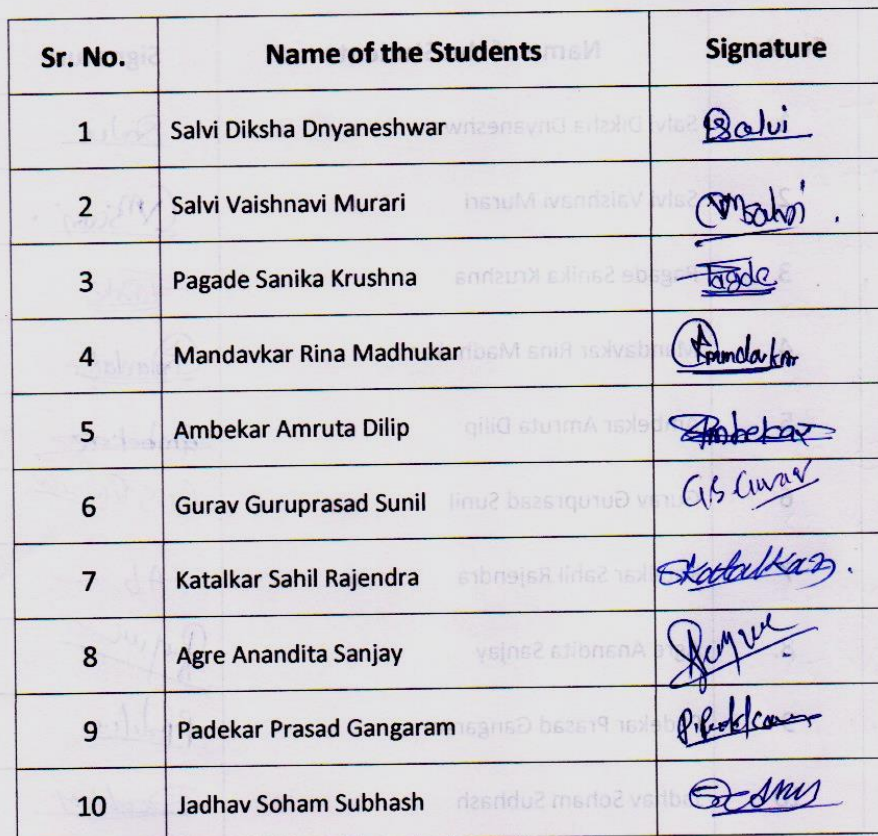 Sr. No. Name of the Students Signature
1 Salvi Diksha Dnyaneshwar Salvi
2 Salvi Vaishnavi Murari
3 Pagade Sanika Krushna
4 Mandavkar Rina Madhukar
5 Ambekar Amruta Dilip Ambekar
6 Gurav Guruprasad Sunil GS Gurav
7 Katalkar Sahil Rajendra Skatalkar
8 Agre Anandita Sanjay
9 Padekar Prasad Gangaram
10 Jadhav Soham Subhash